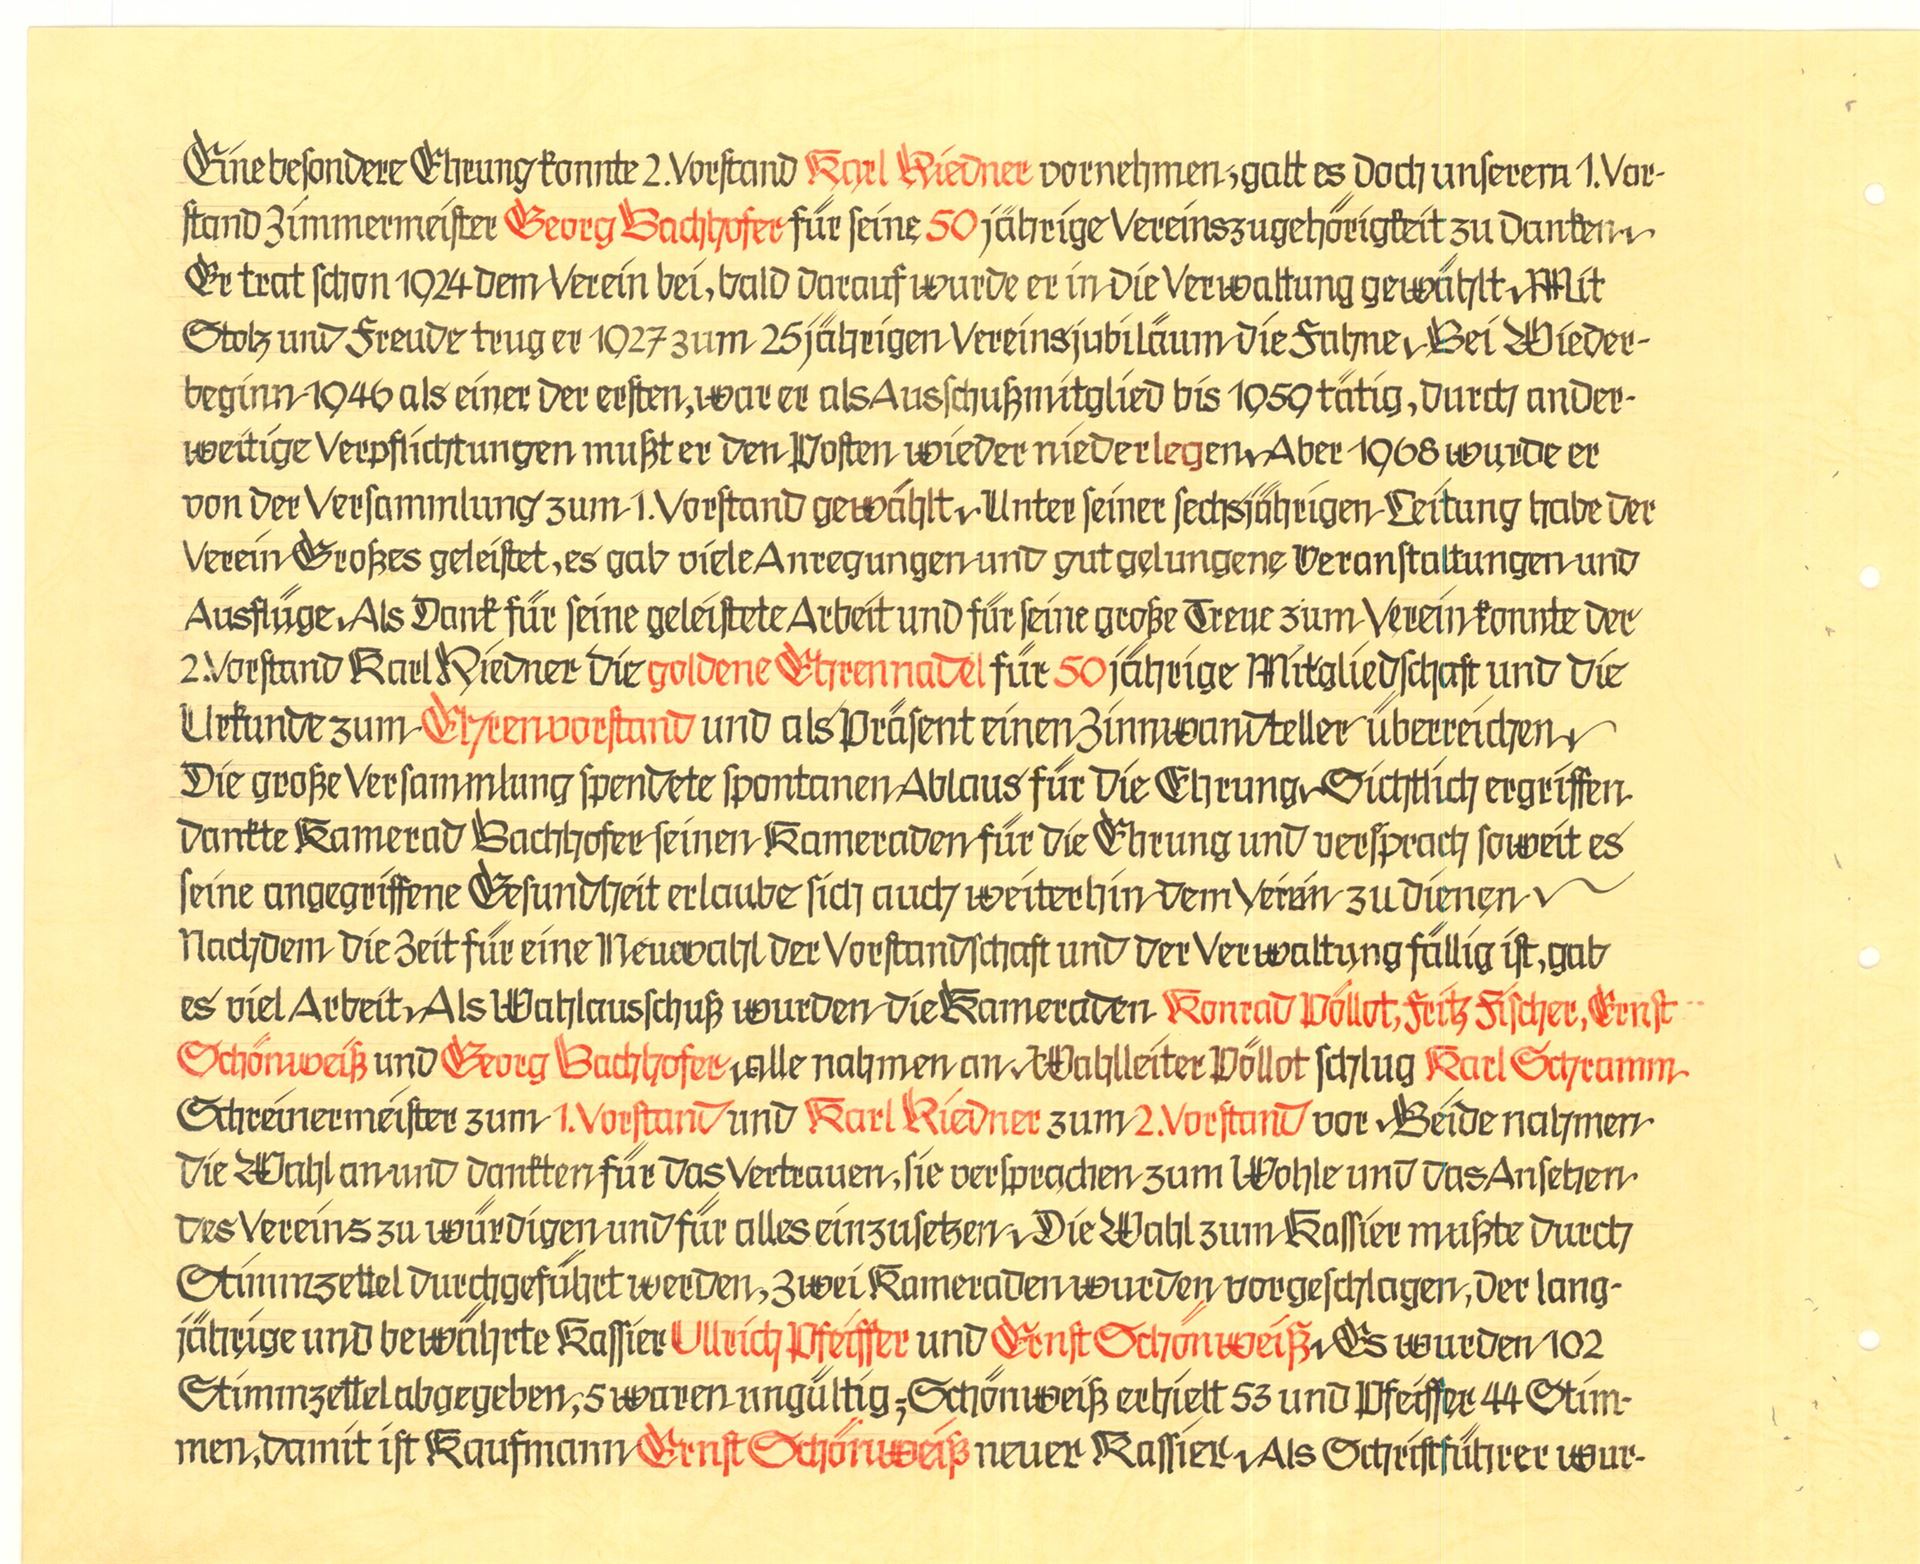 Eine besondere Ehrung konnte 2. Vorstand Karl Riedner vornehmen, galt es doch unserem 1. Vor-
stand Zimmermeister Georg Bachhofer für seine 50 jährige Vereinszugehörigkeit zu danken.
Er trat schon 1924 dem Verein bei, bald darauf wurde er in die Verwaltung gewählt. Mit
Stolz und Freude trug er 1927 zum 25 jährigen Vereinsjubiläum die Fahne. Bei Wieder-
beginn 1946 als einer der ersten, war er als Ausschußmitglied bis 1959 tätig, durch ander-
weitige Verpflichtungen mußt er den Posten wieder niederlegen. Aber 1968 wurde er
von der Versammlung zum 1. Vorstand gewählt. Unter seiner sechsjährigen Leitung habe der
Verein Großes geleistet, es gab viele Anregungen und gut gelungene Veranstaltungen und
Ausflüge. Als Dank für seine geleistete Arbeit und für seine große Treue zum Verein konnte der
2. Vorstand Karl Riedner die goldene Ehrennadel für 50 jährige Mitgliedschaft und die
Urkunde zum Ehrenvorstand und als Präsent einen Zinnwandteller überreichen.
Die große Versammlung spendete spontanen Ablaus für die Ehrung. Sichtlich ergriffen
dankte Kamerad Bachhofer seinen Kameraden für die Ehrung und versprach soweit es
seine angegriffene Gesundheit erlaube sich auch weiterhin dem Verein zu dienen.
Nachdem die Zeit für eine Neuwahl der Vorstandschaft und der Verwaltung fällig ist, gab
es viel Arbeit. Als Wahlausschuß wurden die Kameraden Konrad Pöllot, Fritz Fischer, Ernst
Schönweiß und Georg Bachhofer, alle nahmen an. Wahlleiter Pöllot schlug Karl Schramm
Schreinermeister zum 1. Vorstand und Karl Riedner zum 2. Vorstand vor. Beide nahmen
die Wahl an und dankten für das Vertrauen, sie versprachen zum Wohle und das Ansehen
des Vereins zu würdigen und für alles einzusetzen. Die Wahl zum Kassier mußte durch
Stimmzettel durchgeführt werden, zwei Kameraden wurden vorgeschlagen, der lang-
jährige und bewährte Kassier Ullrich Pfeiffer und Ernst Schönweiß. Es wurden 102
Stimmzettel abgegeben, 5 waren ungültig; Schönweiß erhielt 53 und Pfeiffer 44 Stim-
men, damit ist Kaufmann Ernst Schönweiß neuer Kassier. Als Schriftführer wur-